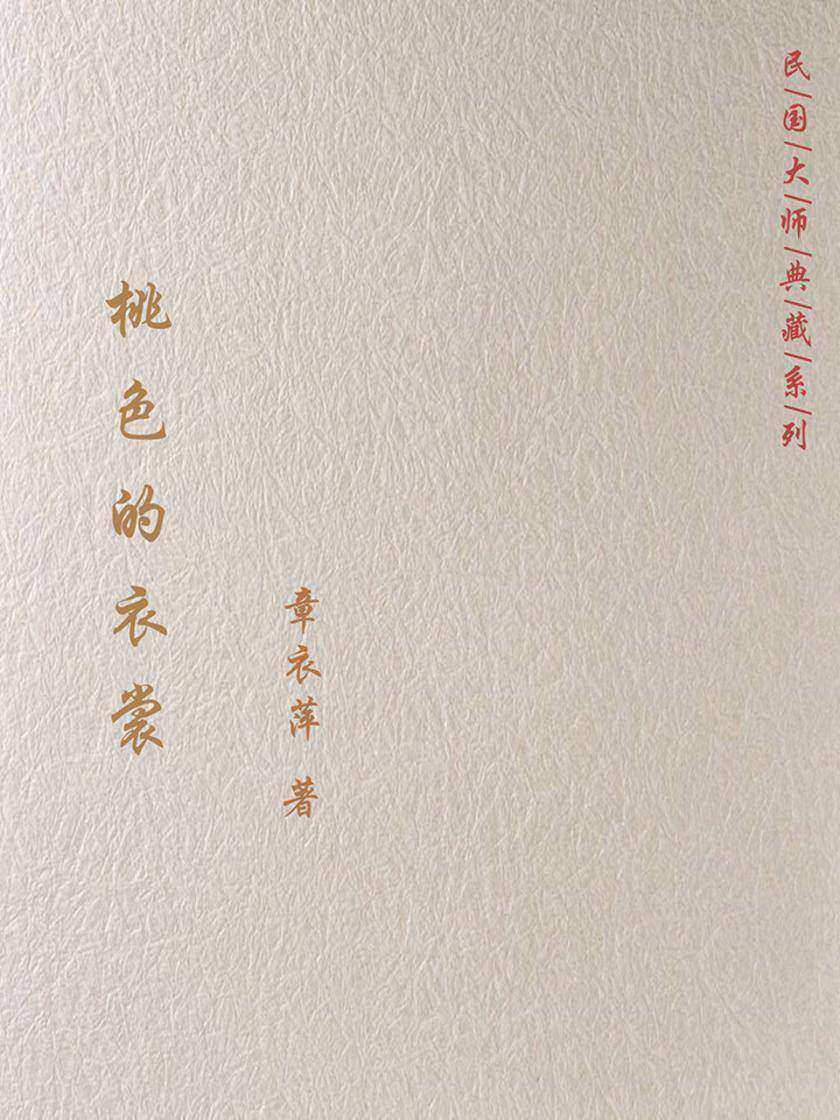 民/国/大/师/典/藏/系/列
桃色的衣裳
章衣萍 著